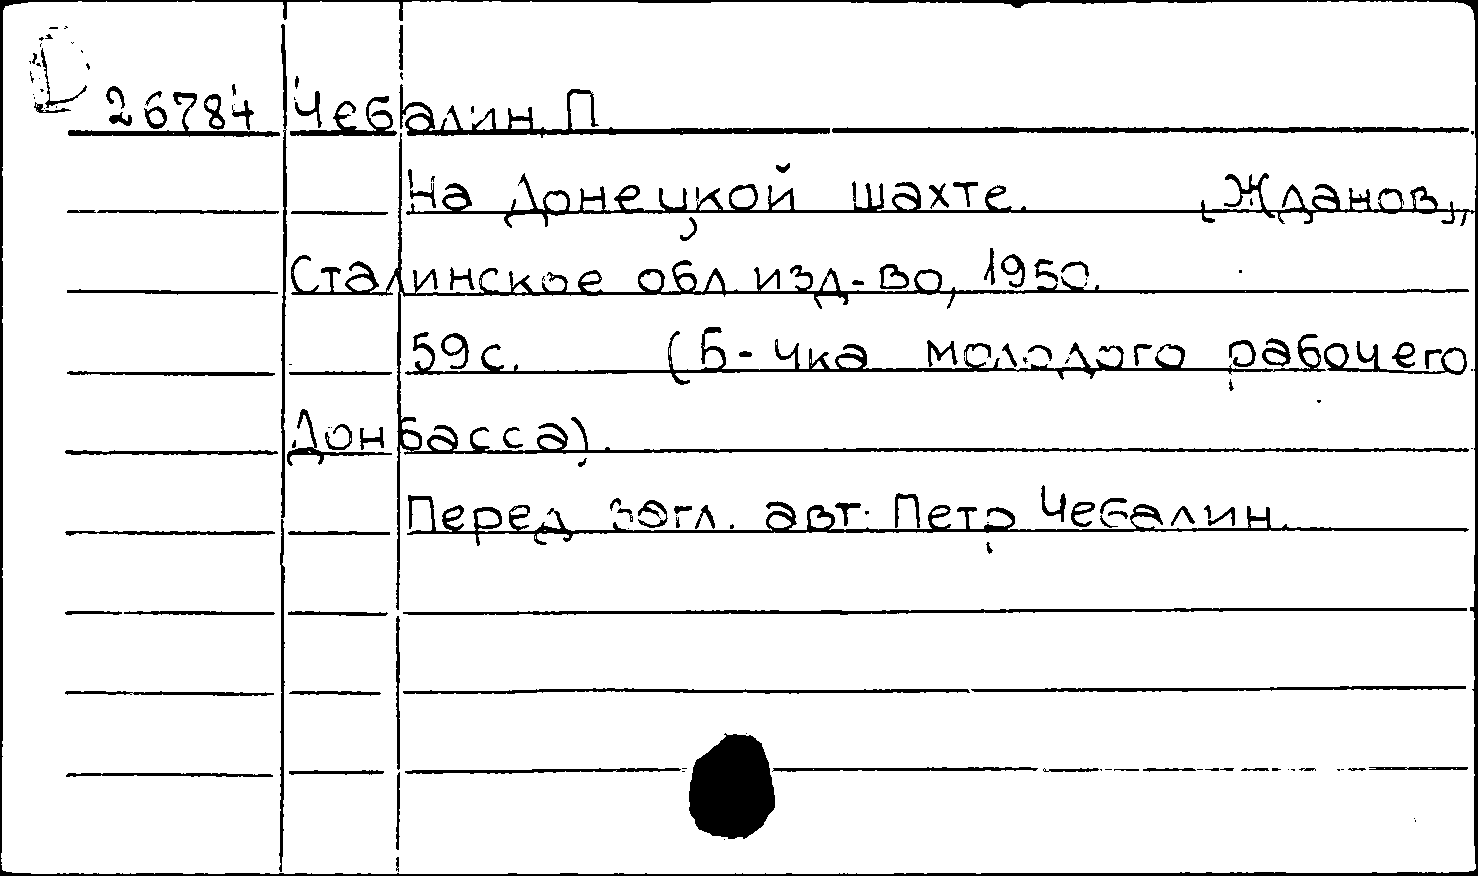 D
26784 Чебалин, П.
На донецкой шахте. [Жданов],
Сталинское обл. изд-во, 1950.
59 с. (Б-чка молодого рабочего
Донбасса).
Перед загл. авт: Петр Чебалин.